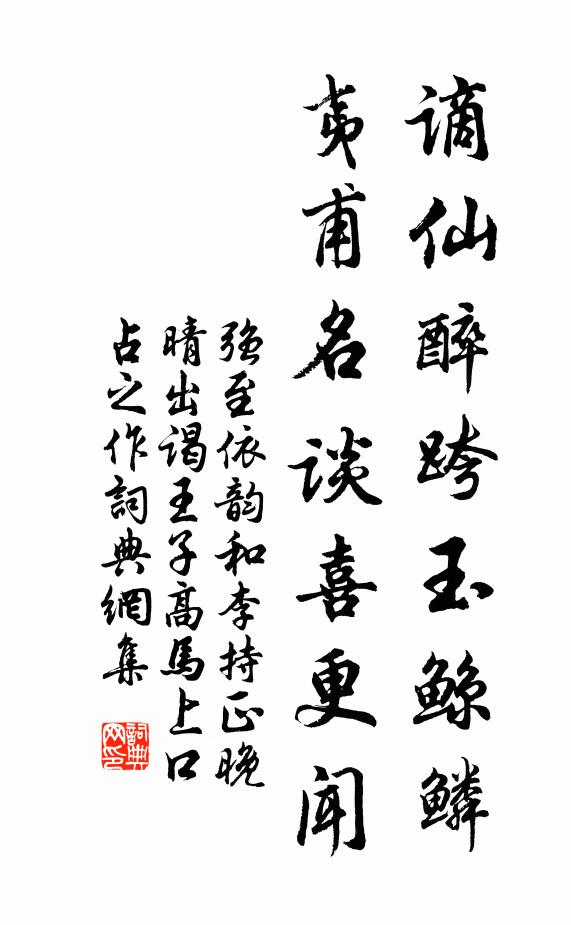 谪仙醉跨玉鲸鳞
夷甫名谈喜更闻
強至依韵和李持正晚
晴出谒王子高馬上口
占之作詞典網集
詞典网印